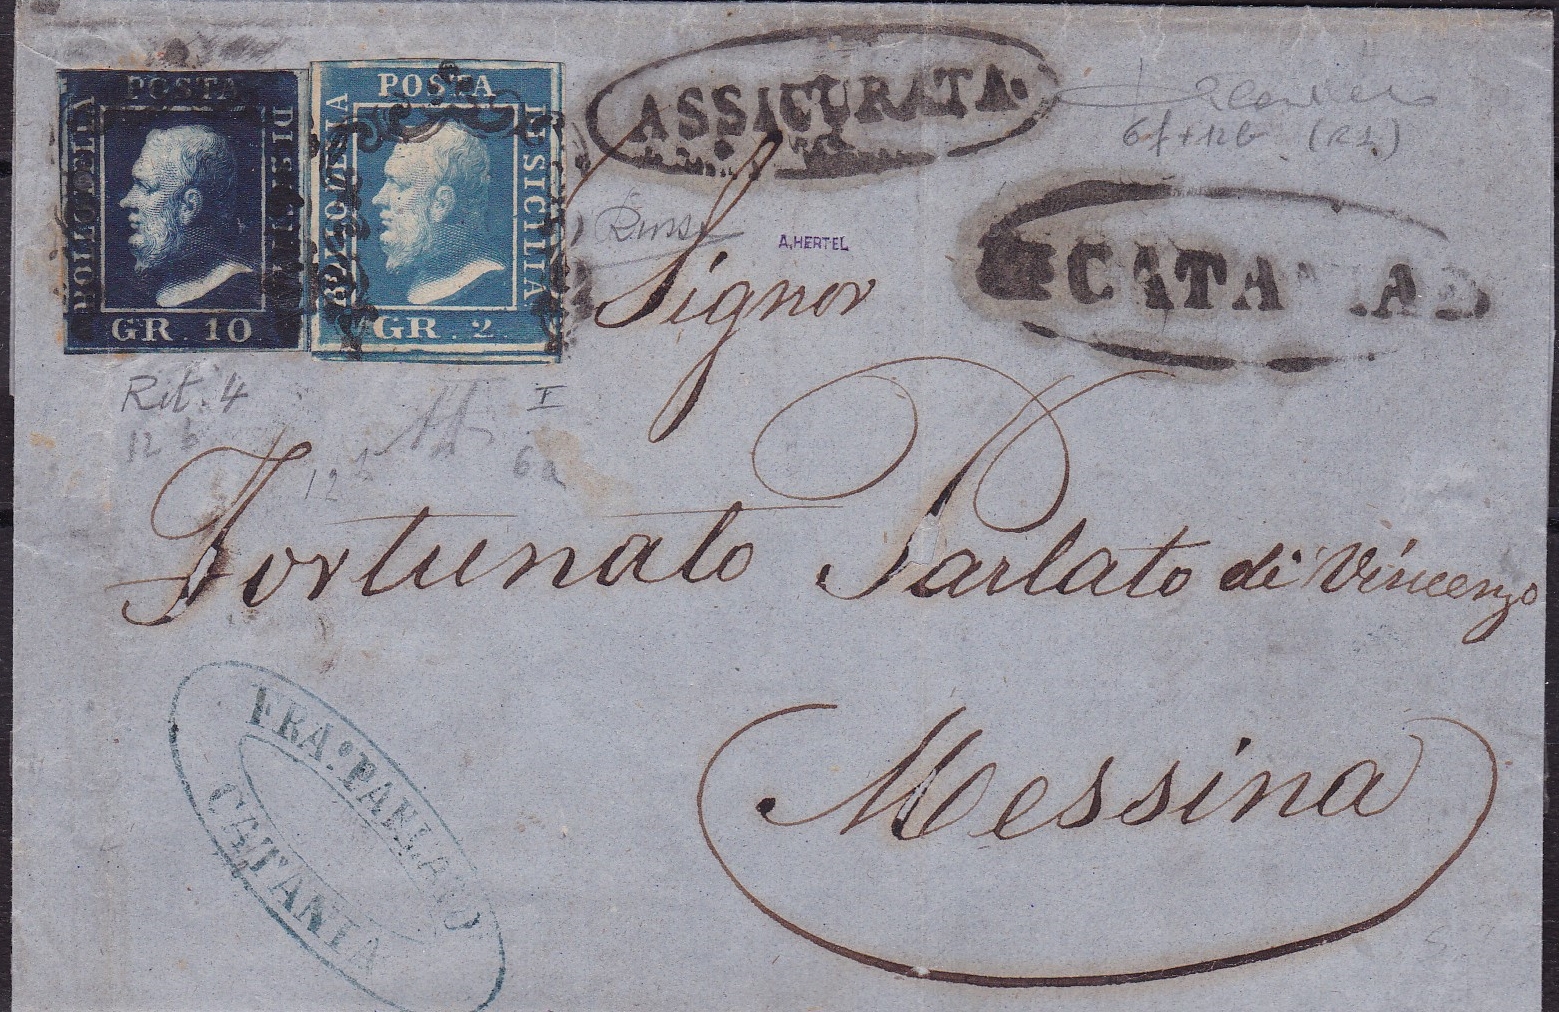 POSTA
BOLLO DELLA
DI SICILIA
GR. 10
POSTA
BOLLO DELLA
DI SICILIA
GR. 2.
ASSICURATA.
6f+12b (R1.)
A.HERTEL
CATANIA
Signor
Rit. 4
12 b
12 b
I
6a
Fortunato Parlato di Vincenzo
Messina
FRA.º PARLATO
CATANIA